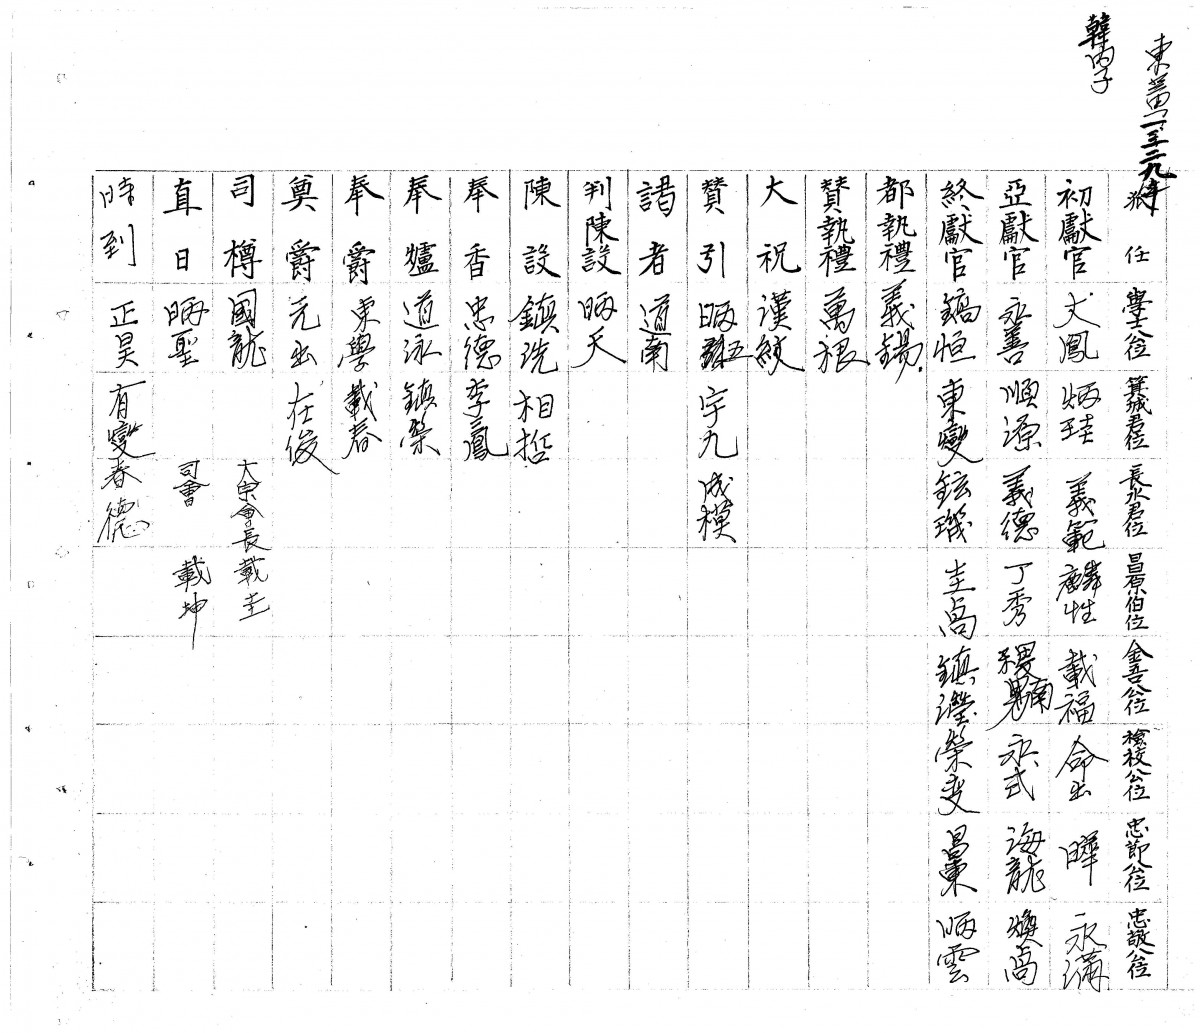 韓丙子
任 學士公位 箕城君位 長水君位 昌原伯位 金吾公位 檢校公位 忠節公位 忠毅公位
初獻官 文鳳 炳珪 義範 麟性 載福 命出 曄 永滿
亞獻官 永善 順源 義德 丁秀 永式 海龍 煥卨
終獻官 鎬恒 東燮 鉉璣 圭卨 鎮瀅 榮燮 昌東 昞雲
都執禮 義錫
贊執禮 萬根
大祝 漢紋
贊引 宇九 成模
謁者 道南
判陳設 昞天
陳設 鎮珖 相哲
奉香 忠德 李鳳
奉爐 道泳 鎮榮
奉爵 東學 載春
奠爵 元出 在俊
司樽 國龍 大宗會長 載圭
直日 昞聖 司會 載坤
時到 正昊 有燮 春德